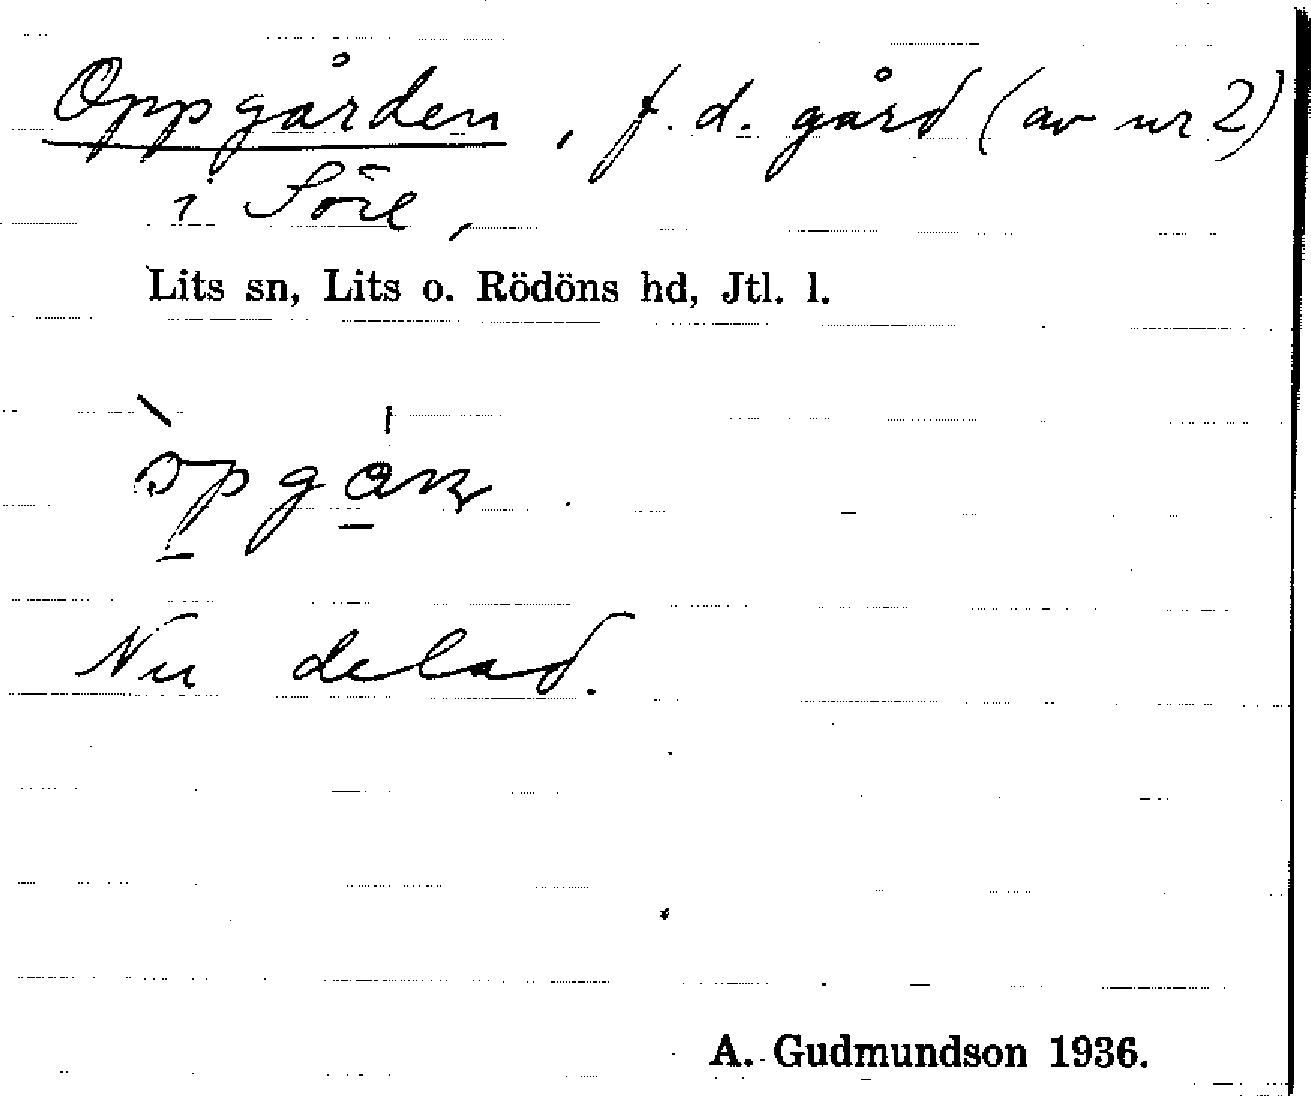 Oppgården, f. d. gård (av nr 2)
i Söre,
Lits sn, Lits o. Rödöns hd, Jtl. l.
Nu delad.
A. Gudmundson 1936.